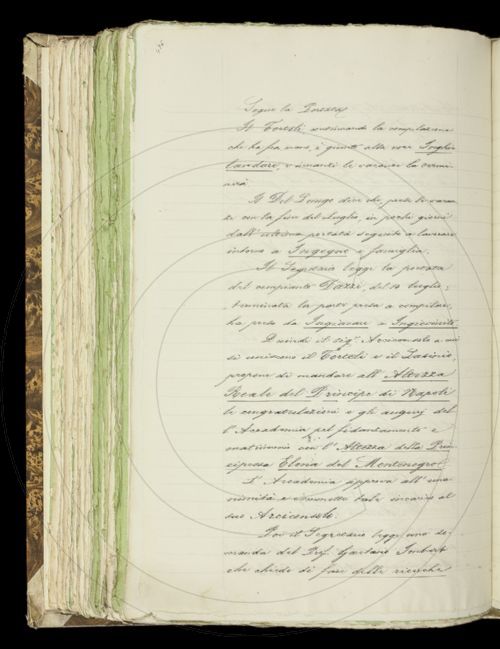 Segue la Porzia
Il Tortoli, continuando la compilazione
che ha fra mano, è giunto alla voce Inghir-
landare, e innanzi le vacanze la termi-
nerà.
Il Del Lungo dice che, prese le vacan-
ze con la fine del Luglio, in pochi giorni
dall'ultima portata seguitò a lavorare
intorno a Ingegno e famiglia.
Il Segretario legge la portata
del compianto Dazzi, del 10 luglio;
terminata la parte presa a compilare,
ha preso da Inginocchiare a
Quindi il sig.r Arciconsolo a cui
si uniscono il Tortoli e il Lasinio,
propone di mandare all'Altezza
Reale del Principe di Napoli
le congratulazioni e gli augurj del
l'Accademia pel fidanzamento e
matrimonio con l'Altezza della Prin-
cipessa Elena del Montenegro.
L'Accademia approva all'una-
nimità e commette tale incarico al
suo Arciconsolo.
Poi il Segretario legge una do-
manda del Prof. Gaetano Imbert
che chiede di fare delle ricerche